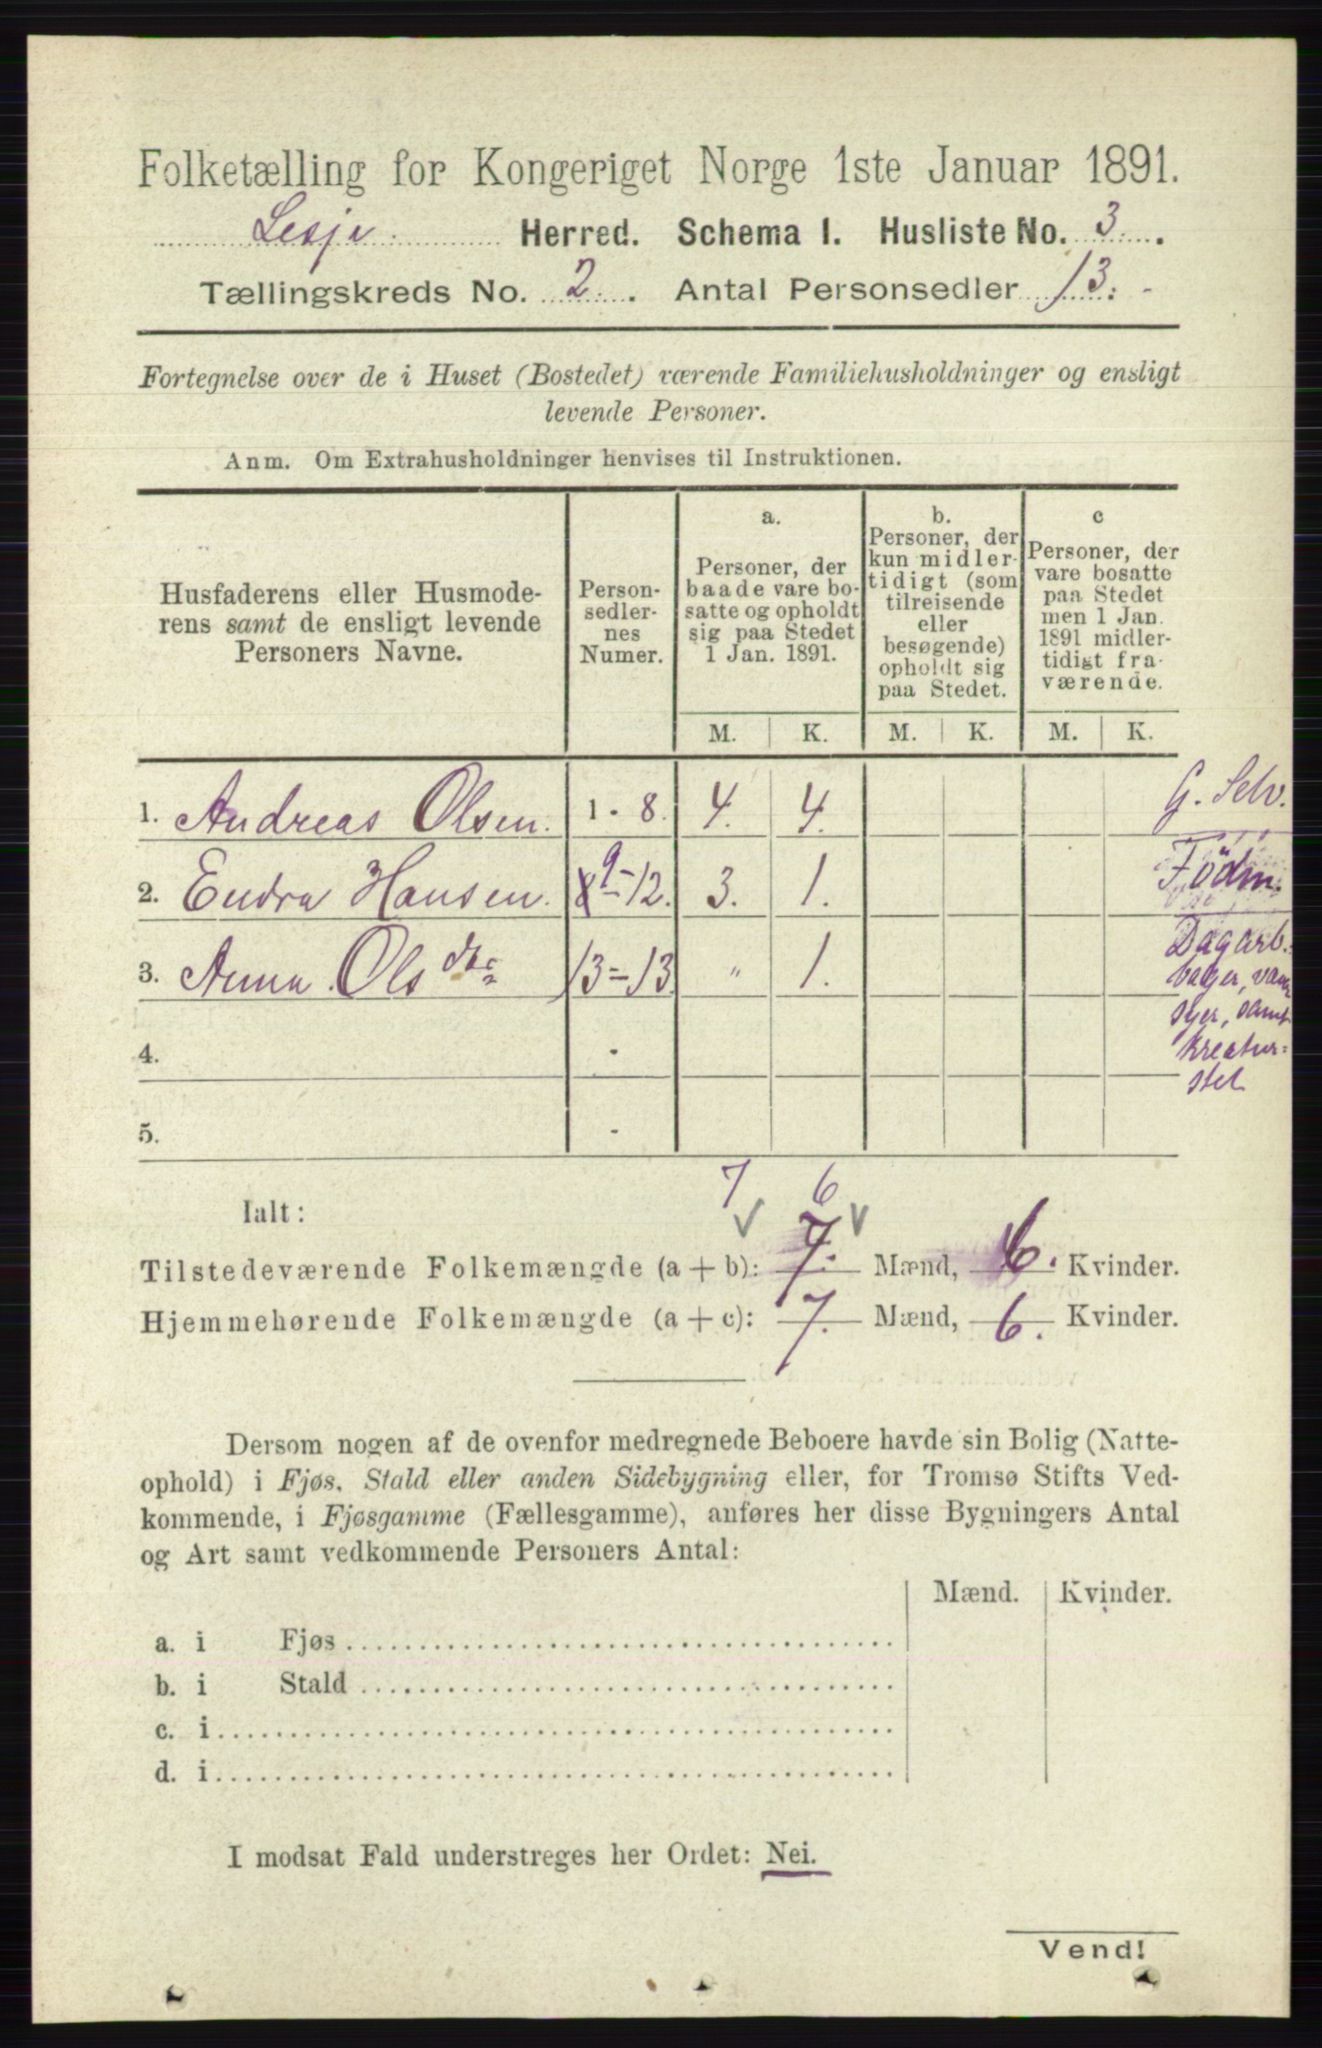 Folketælling for Kongeriget Norge 1ste Januar 1891.
Lesje Herred. Schema 1. Husliste No. 3.
Tællingskreds No. 2. Antal Personsedler 13.
Fortegnelse over de i Huset (Bostedet) værende Familiehusholdninger og ensligt
levende Personer.
Anm. Om Extrahusholdninger henvises til Instruktionen.
Husfaderens eller Husmode-
rens samt de ensligt levende
Personers Navne.
Person-
sedler-
nes
Numer.
a.
Personer, der
baade vare bo-
satte og opholdt
sig paa Stedet
1 Jan. 1891.
b.
Personer, der
kun midler-
tidigt (som
tilreisende
eller
besøgende)
opholdt sig
paa Stedet.
c
Personer, der
vare bosatte
paa Stedet
men 1 Jan.
1891 midler-
tidigt fra-
værende.
M. K. M. K. M. K.
1. Andreas Olsen. 1 - 8. 4. 4. G. Selv.
2. Endra Hansen. 9-12. 3. 1. Födm.
3. Anna Olsdtr 13-13 " 1. Dagarb.
syer, samt
kreatur-
stel
4. -
5. -
7 6
Ialt:
Tilstedeværende Folkemængde (a + b): 7. Mænd, 6. Kvinder.
Hjemmehørende Folkemængde (a + c): 7. Mænd, 6. Kvinder.
Dersom nogen af de ovenfor medregnede Beboere havde sin Bolig (Natte-
ophold) i Fjøs, Stald eller anden Sidebygning eller, for Tromsø Stifts Ved-
kommende, i Fjøsgamme (Fællesgamme), anføres her disse Bygningers Antal
og Art samt vedkommende Personers Antal:
Mænd. Kvinder.
a. i Fjøs
b. i Stald
c. i
d. i
I modsat Fald understreges her Ordet: Nei.
Vend!